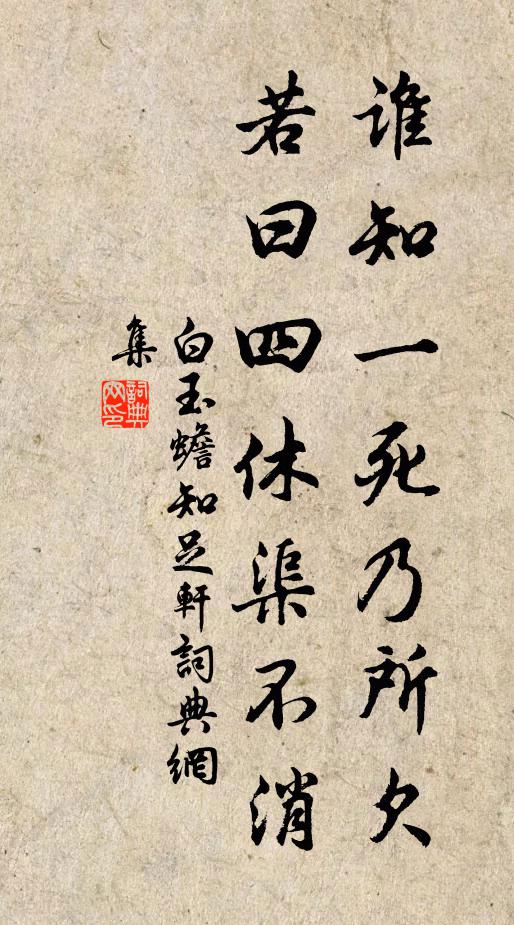 谁知一死乃所欠
若曰四休渠不消
白玉蟾知足軒詞典網
集
詞典
网印